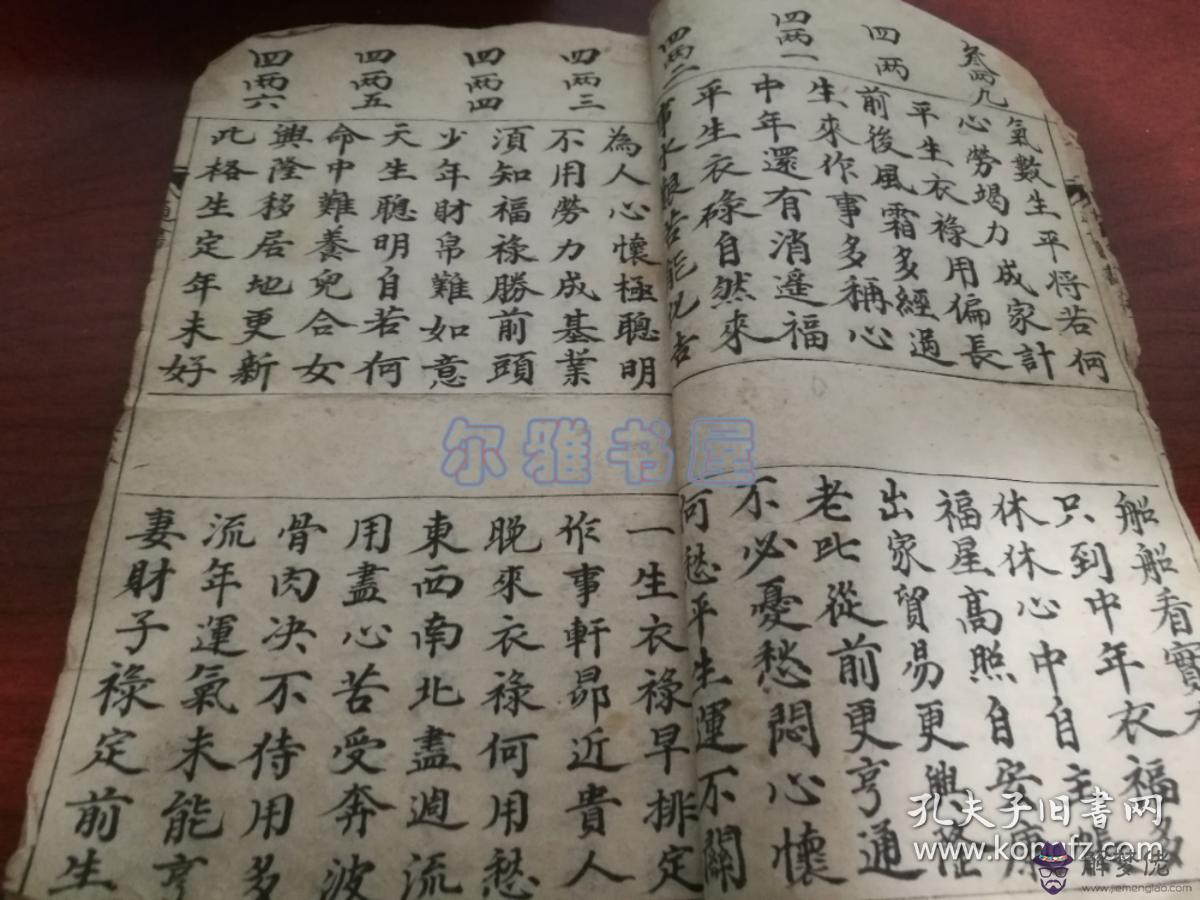 叁兩九
氣數生平將若何
心勞竭力成家計
四兩
平生衣祿用偏長
前後風霜多經過
四兩一
生來作事多稱心
中年還有消遙福
四兩二
平生衣碌自然來
船船看寶
只到中年衣福多
休休心中自主
福星高照自安康
出家貿易更興隆
老此從前更亨通
不必憂愁悶心懷
何愁平生運不關
四兩三
為人心懷極聰明
不用勞力成基業
四兩四
須知福祿勝前頭
少年財帛難如意
四兩五
天生聰明自若何
命中難養兒合女
四兩六
興隆移居地更新
此格生定年未好
一生衣祿早排定
作事軒昂近貴人
晚來衣祿何用愁
東西南北盡週流
用盡心苦受奔波
骨肉决不待用多
流年運氣未能亨
妻財子祿定前生
尔雅书屋
孔夫子旧书网
www.kongfz.com
解梦佬
www.jiemenglao.com